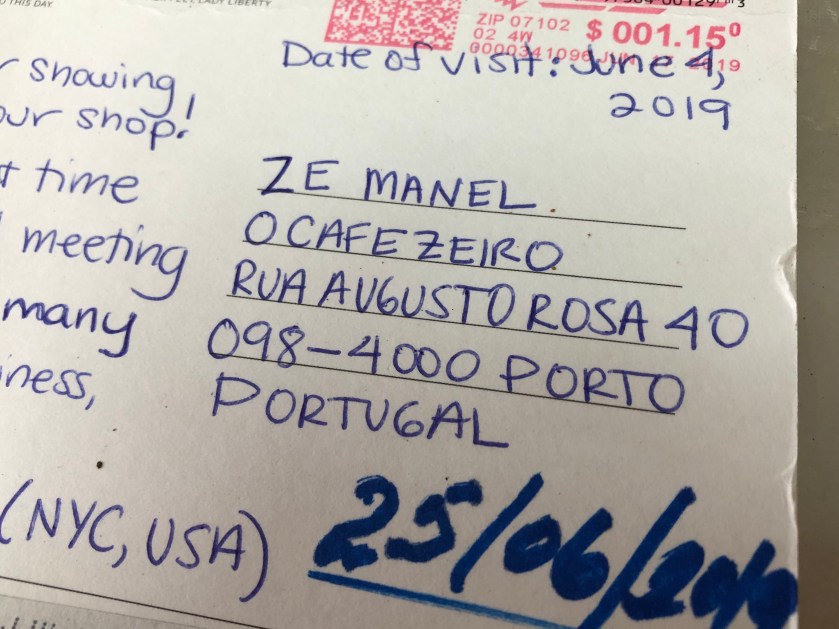 THIS DAY
LADY LIBERTY
ZIP 07102 $ 001.15⁰
02 4W
0000341096 JUN. 2019
Date of visit: June 4,
2019
showing
our shop!
time
meeting
many
iness,
ZE MANEL
O CAFEZEIRO
RUA AUGUSTO ROSA 40
098-4000 PORTO
PORTUGAL
(NYC, USA)
25/06/2019